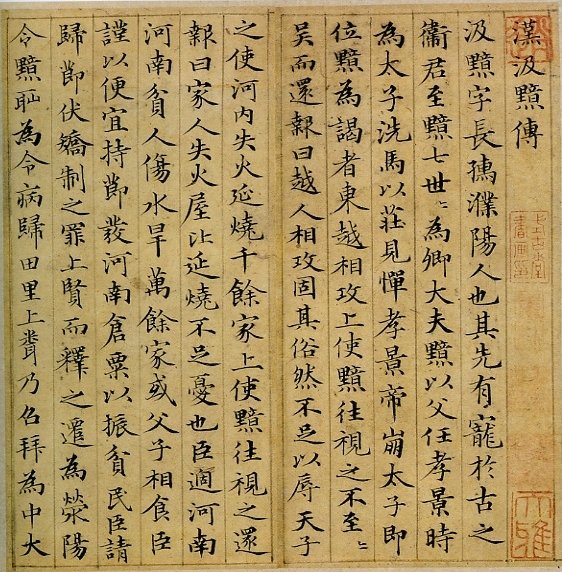 漢汲黯傳
汲黯字長孺濮陽人也其先有寵於古之
衞君至黯七世〻為卿大夫黯以父任孝景時
為太子洗馬以莊見憚孝景帝崩太子即
位黯為謁者東越相攻上使黯往視之不至〻
吴而還報曰越人相攻固其俗然不足以辱天子
之使河内失火延燒千餘家上使黯往視之還
報曰家人失火屋比延燒不足憂也臣適河南
河南貧人傷水旱萬餘家或父子相食臣
謹以便宜持節發河南倉粟以振貧民臣請
歸節伏矯制之罪上賢而釋之遷為滎陽
令黯耻為令病歸田里上聞乃召拜為中大